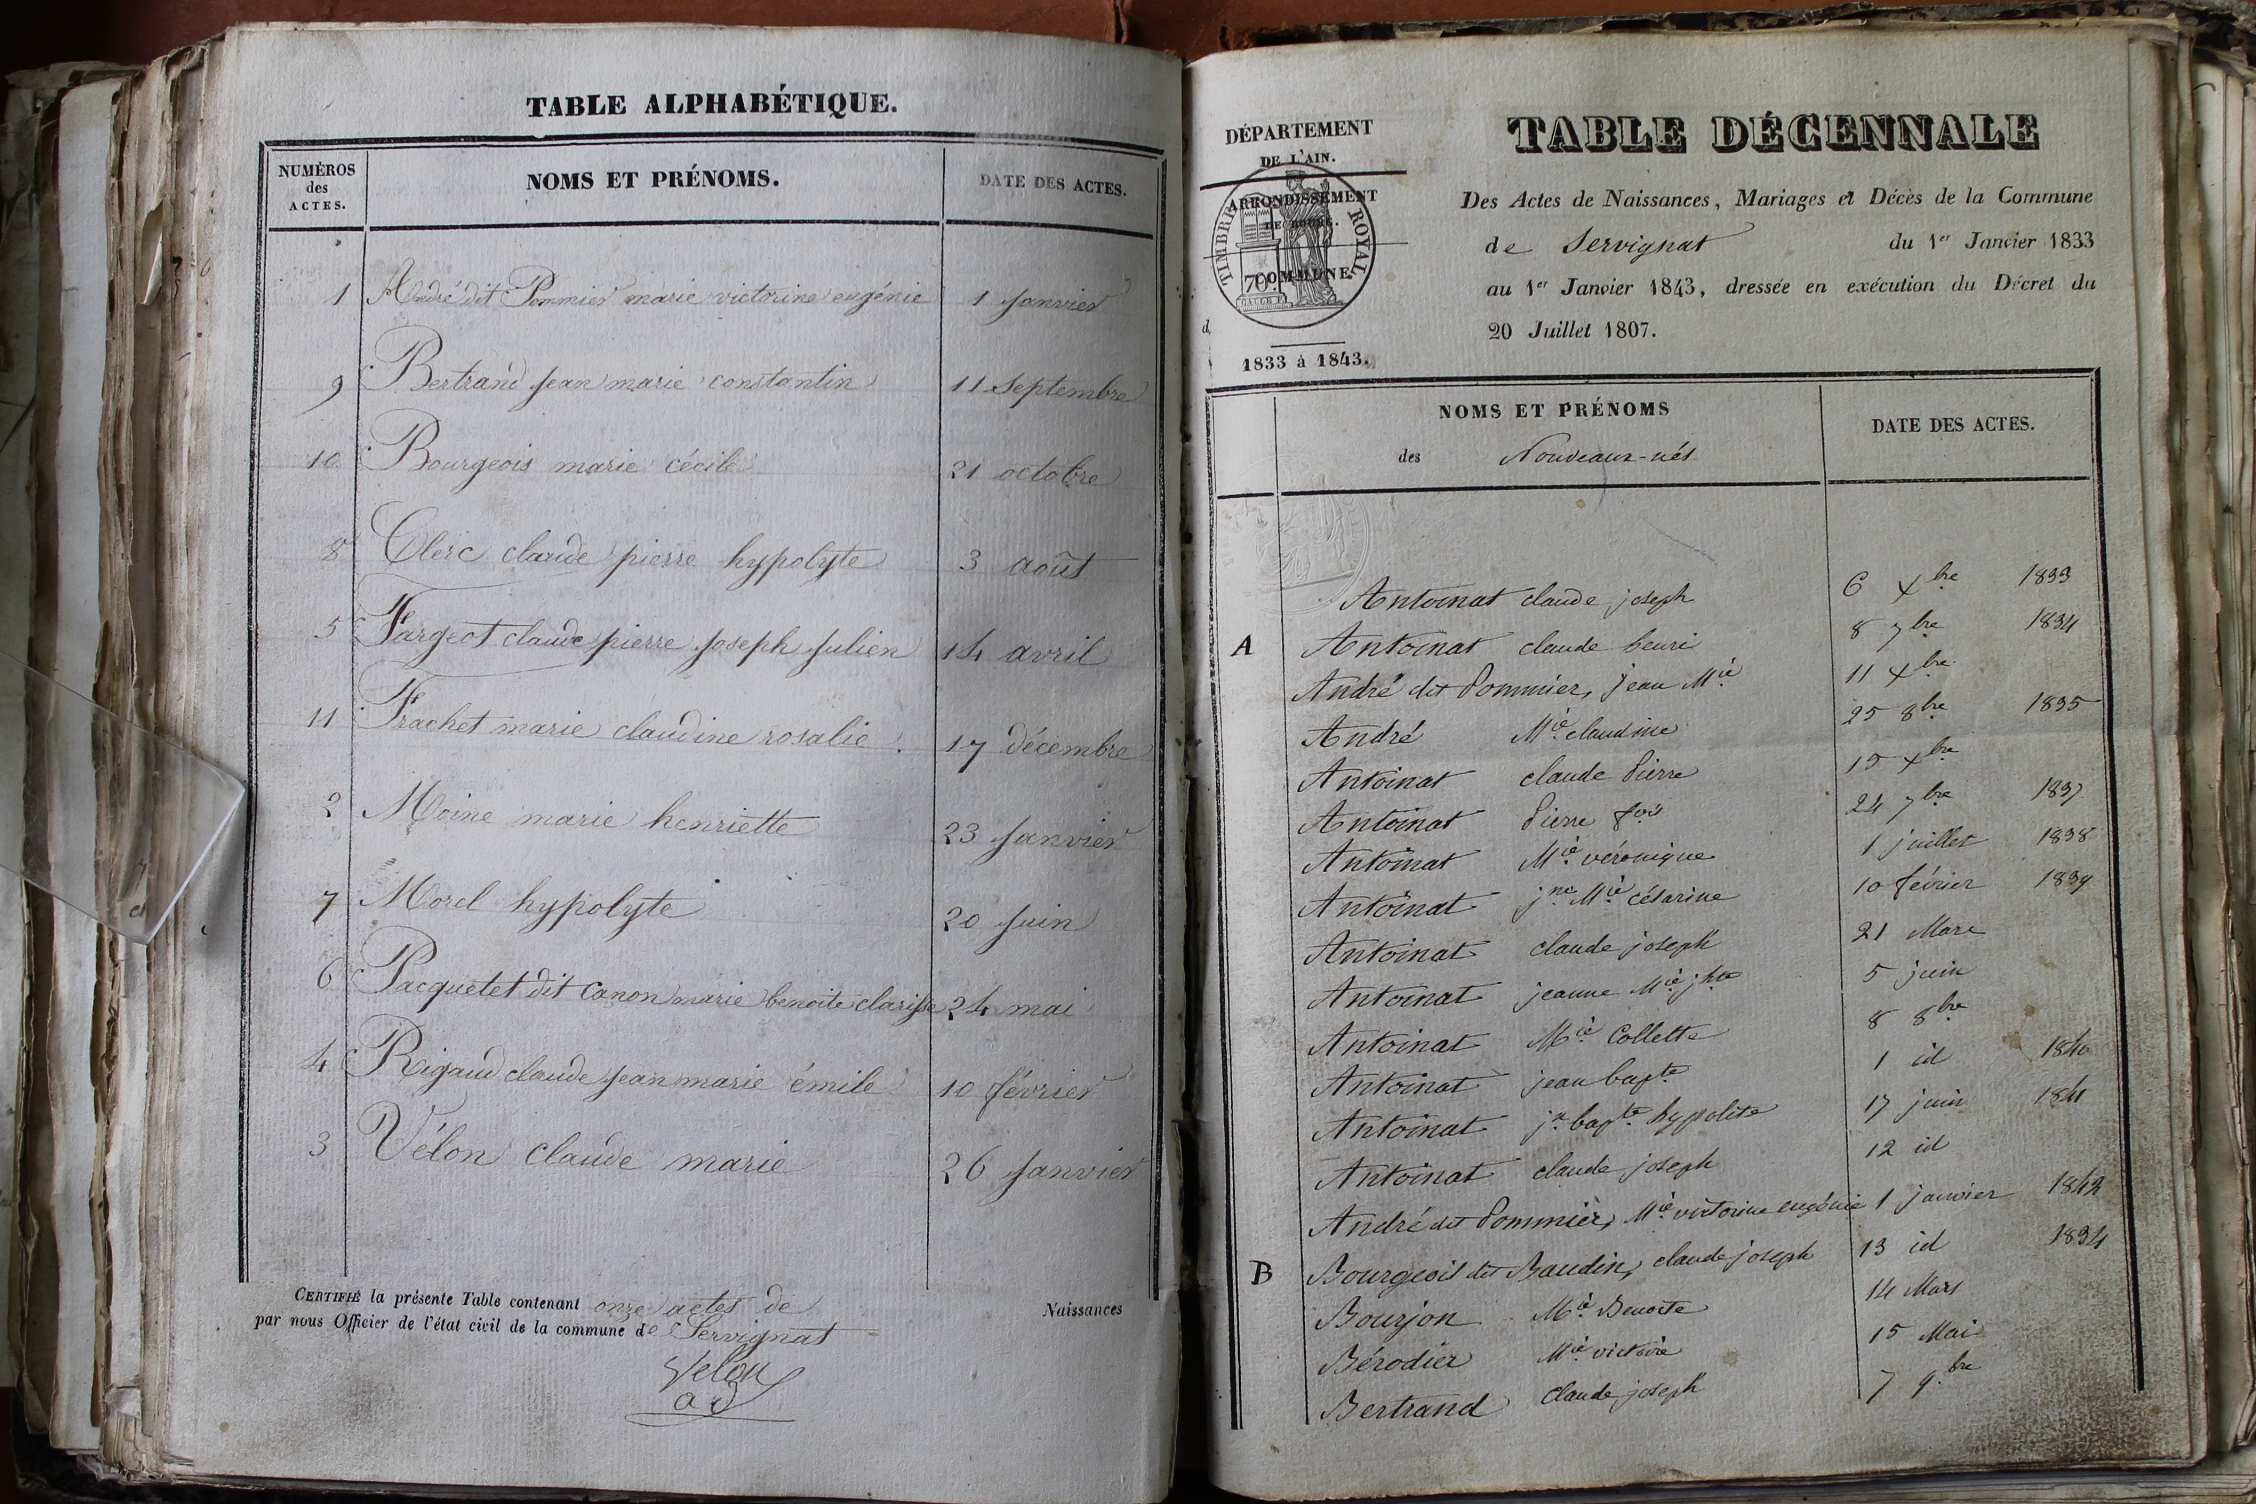 TABLE ALPHABÉTIQUE.
NUMÉROS des ACTES. NOMS ET PRÉNOMS. DATE DES ACTES.
1 André dit Pommier marie victorine eugénie 1 Janvier
9 Bertrand Jean marie constantin 11 Septembre
10 Bourgeois marie cécile 21 octobre
8 Clerc claude pierre hypolyte 3 août
5 Fargeot claude pierre Joseph Julien 14 avril
11 Frachet marie claudine rosalie 17 décembre
2 Moine marie henriette 23 Janvier
7 Morel hypolyte 20 Juin
6 Pacquetet dit Canon marie benoite clarisse 24 mai
4 Rigaud claude Jean marie émile 10 février
3 Vélon claude marie 26 Janvier
CERTIFIÉ la présente Table contenant onze actes de Naissances
par nous Officier de l'état civil de la commune de Servignat
Velon
ad
DÉPARTEMENT
DE L'AIN.
ARRONDISSEMENT
DE BOURG.
COMMUNE
d
TIMBRE ROYAL
70
1833 à 1843.
TABLE DÉCENNALE
Des Actes de Naissances, Mariages et Décès de la Commune
de Servignat du 1er Janvier 1833
au 1er Janvier 1843, dressée en exécution du Décret du
20 Juillet 1807.
NOMS ET PRÉNOMS
des Nouveaux-nés
DATE DES ACTES.
Antoinat claude joseph 6 xbre 1833
A Antoinat claude henri 8 7bre 1834
André dit Pommier, jean Mie 11 xbre
André Mie claudine 25 8bre 1835
Antoinat claude Pierre 15 xbre
Antoinat Pierre fois 24 7bre 1837
Antoinat Mie véronique 1 juillet 1838
Antoinat jne Mie césarine 10 février 1839
Antoinat claude joseph 21 Mars
Antoinat jeanne Mie jhte 5 juin
Antoinat Mie Collette 8 8bre
Antoinat jean bapte 1 id 1840
Antoinat jn bapte hypolite 17 juin 1841
Antoinat claude joseph 12 id
André dit Pommier, Mie victorine eugénie 1 janvier 1842
B Bourgeois dit Baudin, claude joseph 13 id 1834
Bourjon Mie Benoite 14 Mars
Bérodier Mie victoire 15 Mai
Bertrand claude joseph 7 9bre